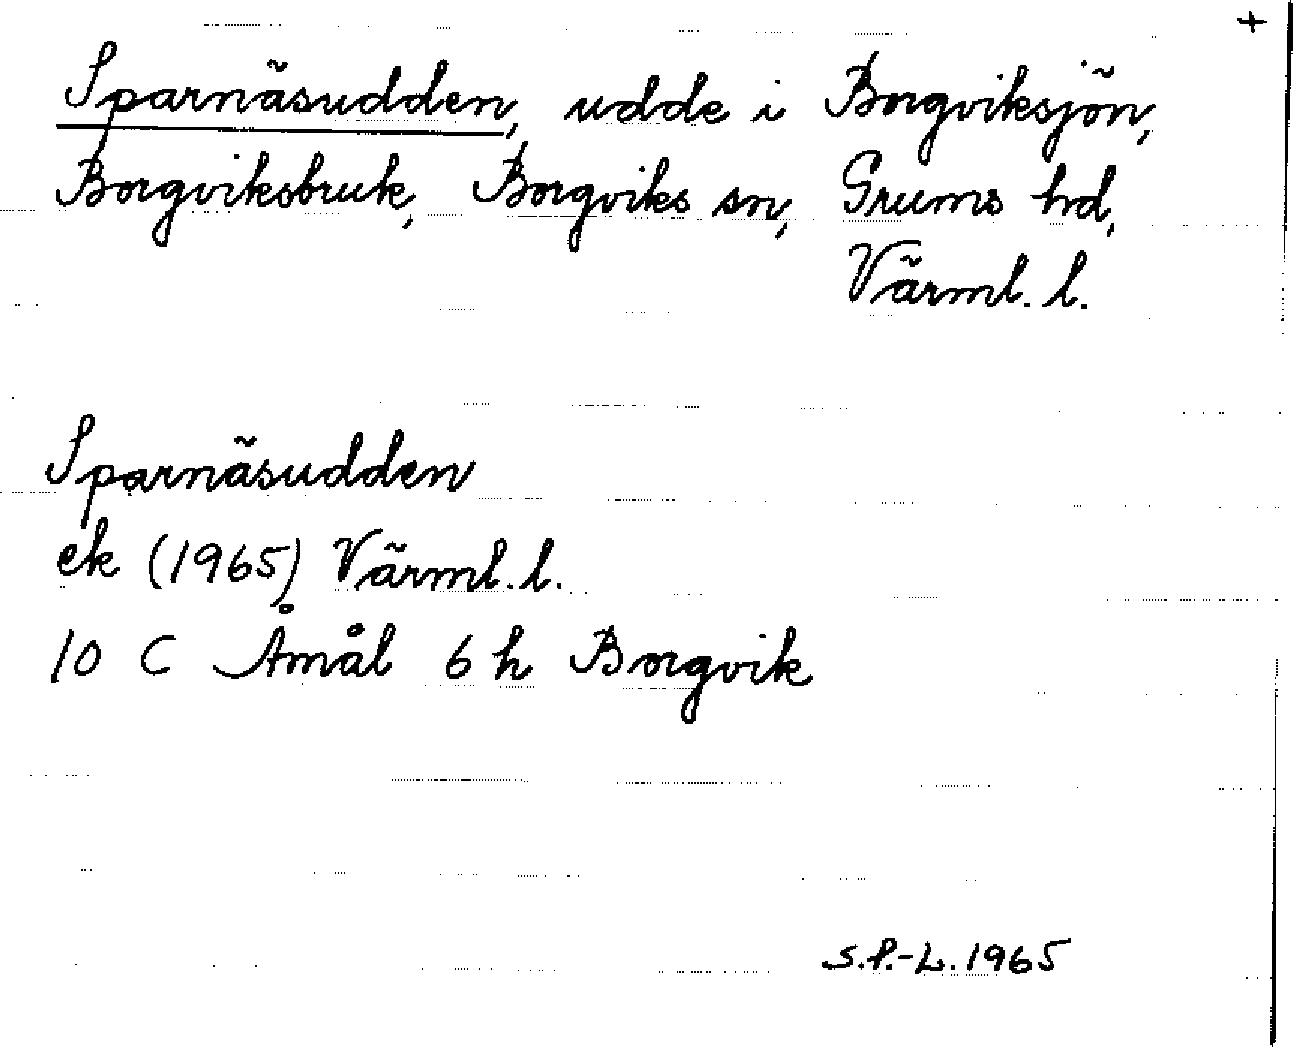 +
Sparnäsudden, udde i Borgviksjön,
Borgviksbruk, Borgviks sn, Grums hd,
Värml. l.
Sparnäsudden
ek (1965) Värml. l.
10 C Åmål 6 h Borgvik
S.P.-L. 1965